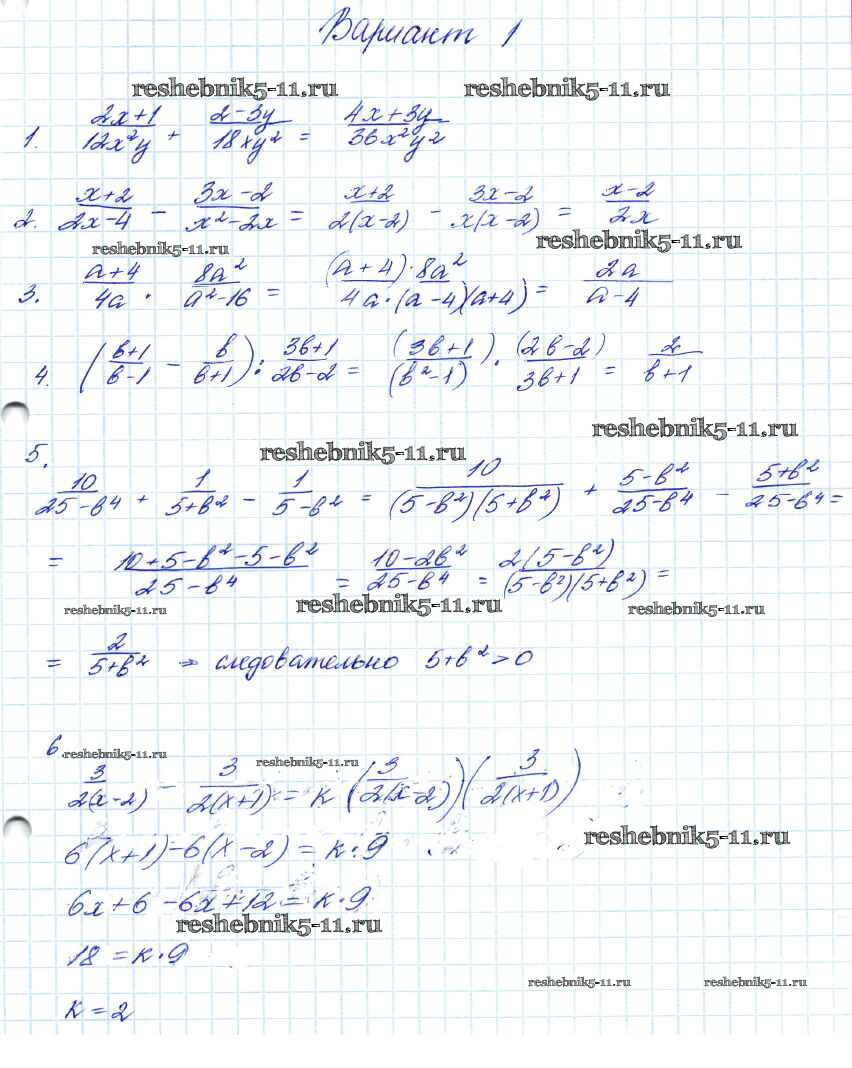 Вариант 1
reshebnik5-11.ru reshebnik5-11.ru
1. (2x+1)/(12x²y) + (2-3y)/(18xy²) = (4x+3y)/(36x²y²)
2. (x+2)/(2x-4) - (3x-2)/(x²-2x) = (x+2)/(2(x-2)) - (3x-2)/(x(x-2)) = (x-2)/(2x)
reshebnik5-11.ru reshebnik5-11.ru
3. (a+4)/(4a) · (8a²)/(a²-16) = ((a+4)·8a²)/(4a·(a-4)(a+4)) = (2a)/(a-4)
4. ((b+1)/(b-1) - b/(b+1)) : (3b+1)/(2b-2) = (3b+1)/(b²-1) · (2b-2)/(3b+1) = 2/(b+1)
reshebnik5-11.ru
5. reshebnik5-11.ru
10/(25-b⁴) + 1/(5+b²) - 1/(5-b²) = 10/((5-b²)(5+b²)) + (5-b²)/(25-b⁴) - (5+b²)/(25-b⁴) =
= (10+5-b²-5-b²)/(25-b⁴) = (10-2b²)/(25-b⁴) = (2(5-b²))/((5-b²)(5+b²)) =
reshebnik5-11.ru reshebnik5-11.ru reshebnik5-11.ru
= 2/(5+b²) ⇒ следовательно 5+b²>0
6. reshebnik5-11.ru reshebnik5-11.ru
3/(2(x-2)) - 3/(2(x+1)) = k (3/(2(x-2))) (3/(2(x+1)))
reshebnik5-11.ru
6(x+1)-6(x-2) = k·9
6x+6-6x+12=k·9
reshebnik5-11.ru
18=k·9
reshebnik5-11.ru reshebnik5-11.ru
k=2